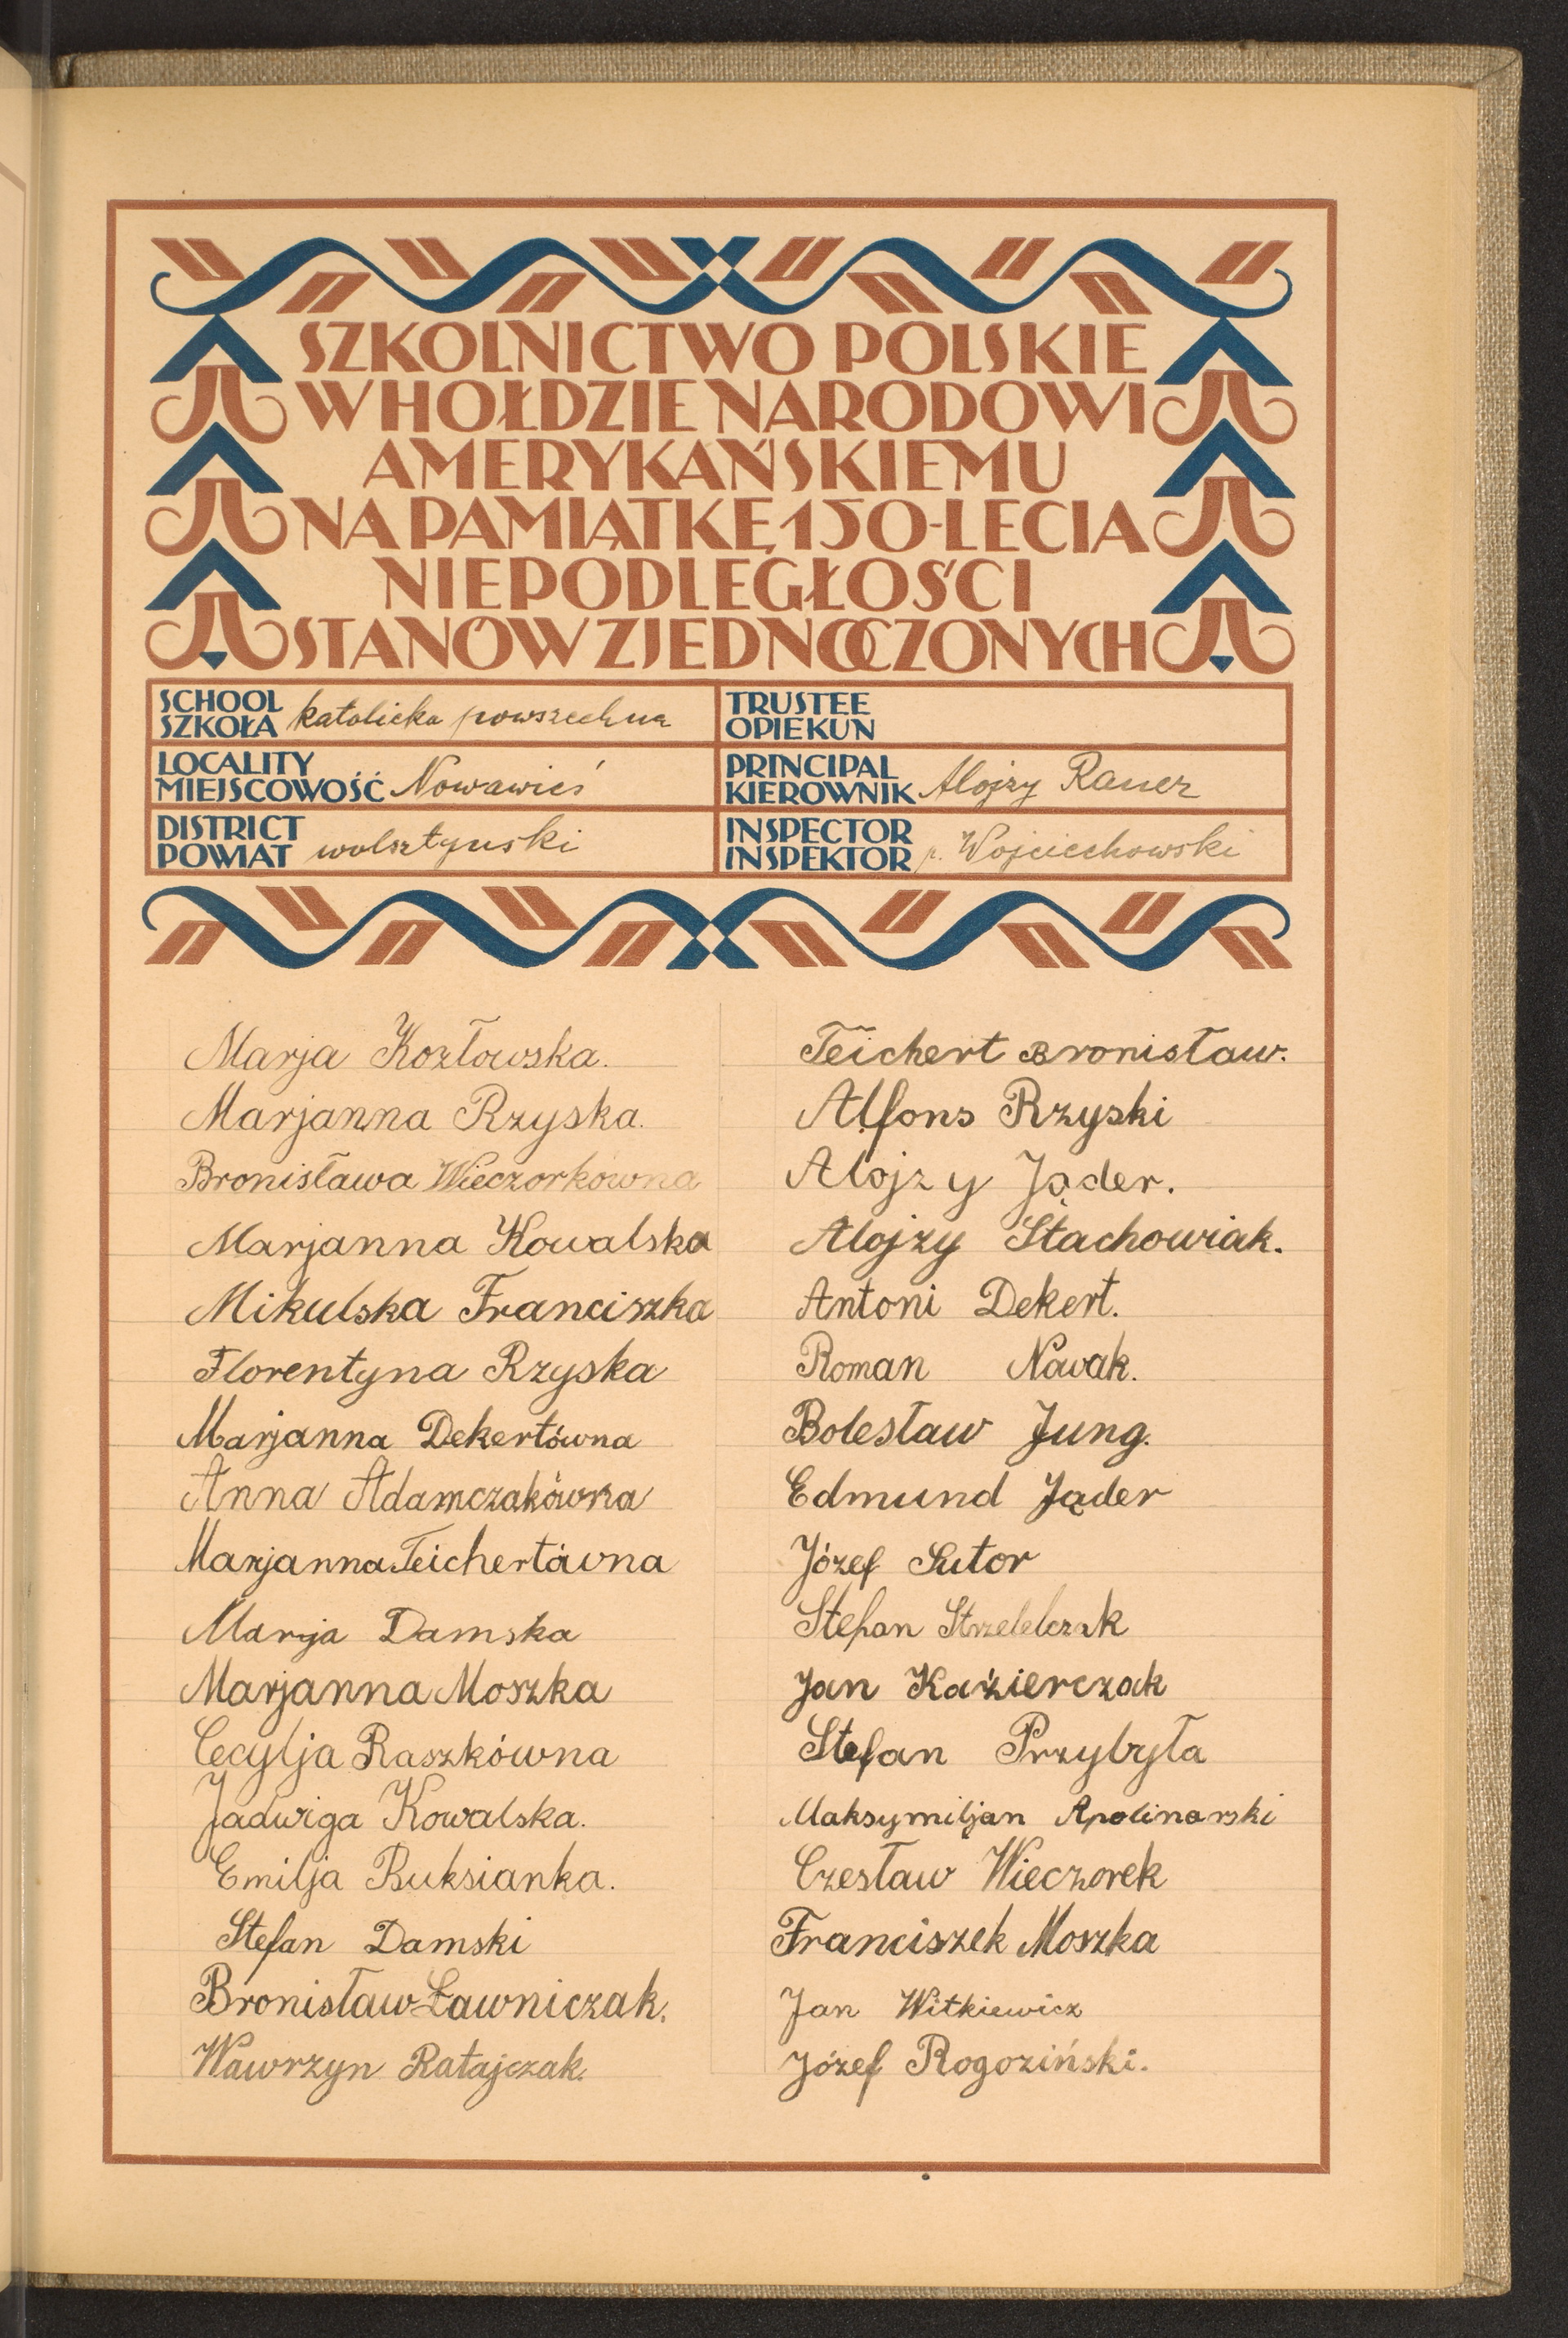 SZKOLNICTWO POLSKIE
W HOŁDZIE NARODOWI
AMERYKAŃSKIEMU
NA PAMIĄTKĘ 150-LECIA
NIEPODLEGŁOŚCI
STANÓW ZJEDNOCZONYCH
SCHOOL
SZKOŁA katolicka powszechna
LOCALITY
MIEJSCOWOŚĆ Nowawieś
DISTRICT
POWIAT wolsztyński
TRUSTEE
OPIEKUN
PRINCIPAL
KIEROWNIK Alojzy Rauer
INSPECTOR
INSPEKTOR p. Wojciechowski
Marja Kozłowska.
Marjanna Rzyska.
Bronisława Wieczorkówna
Marjanna Kowalska
Mikulska Franciszka
Florentyna Rzyska
Marjanna Dekertówna
Anna Adamczakówna
Marjanna Teichertówna
Marja Damska
Marjanna Moszka
Cecylja Raszkówna
Jadwiga Kowalska.
Emilja Buksianka.
Stefan Damski
Bronisław Ławniczak.
Wawrzyn Ratajczak.
Teichert Bronisław.
Alfons Rzyski
Alojzy Jąder.
Alojzy Stachowiak.
Antoni Dekert.
Roman Nowak.
Bolesław Jung.
Edmund Jąder
Józef Sutor
Stefan Strzelelczak
Jan Kaźierczak
Stefan Przybyła
Maksymiljan Apolinarski
Czesław Wieczorek
Franciszek Moszka
Jan Witkiewicz
Józef Rogoziński.